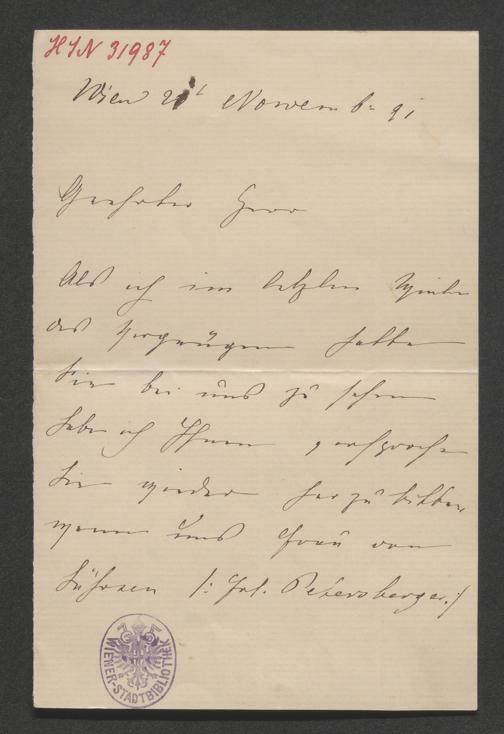 HIN 31987
Wien 21t Novemb. 91
Geehrter Herr
Als ich im letzten Winter
das Vergnügen hatte
Sie bei uns zu sehen
habe ich Ihnen versprochen
Sie wieder herzu bitten,
wenn uns Frau von
/: Frl. Petersberger :/
WIENER-STADTBIBLIOTHEK